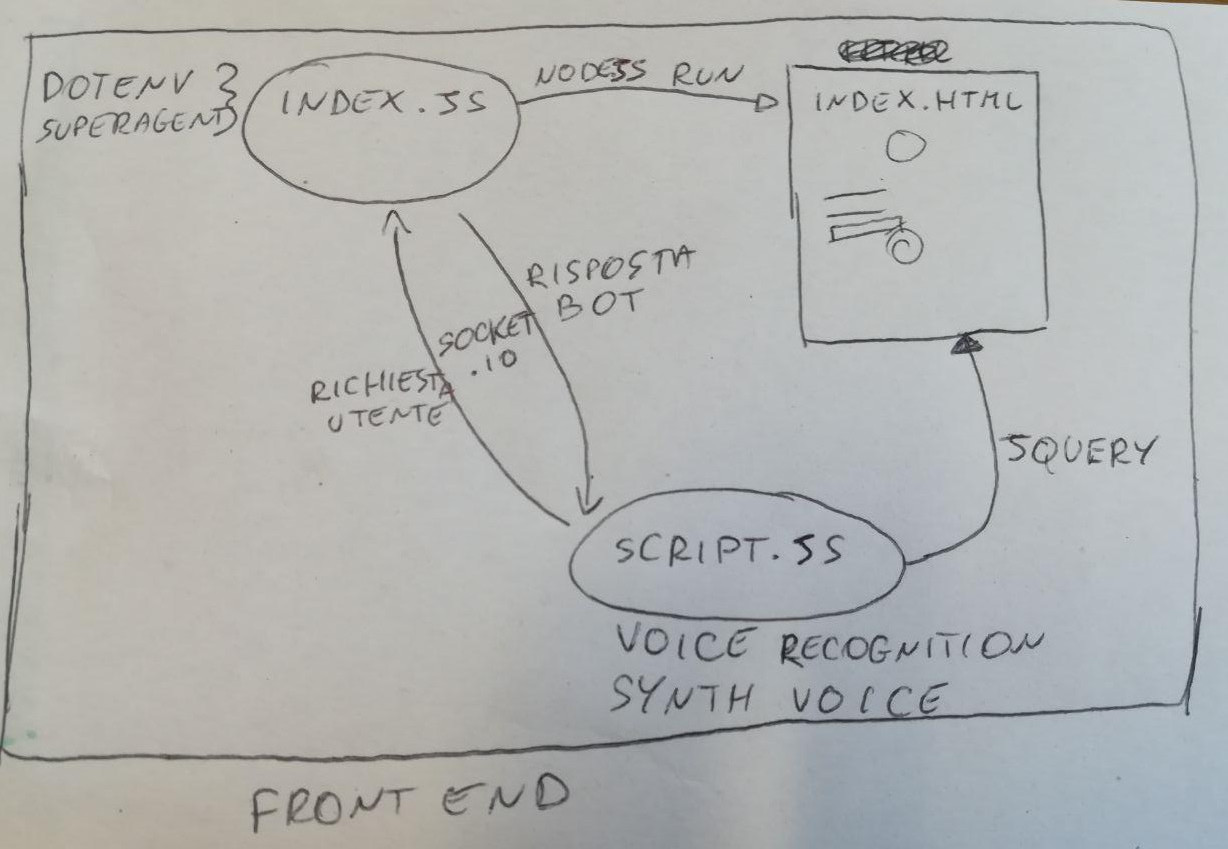 DOTENV }
SUPERAGENT }
INDEX.JS
NODEJS RUN
INDEX.HTML
RISPOSTA
BOT
SOCKET
.IO
RICHIESTA
UTENTE
JQUERY
SCRIPT.JS
VOICE RECOGNITION
SYNTH VOICE
FRONT END